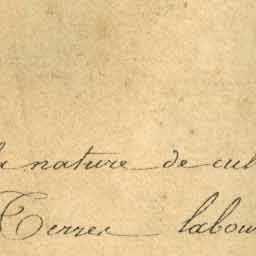 la nature de cul
Terres labou